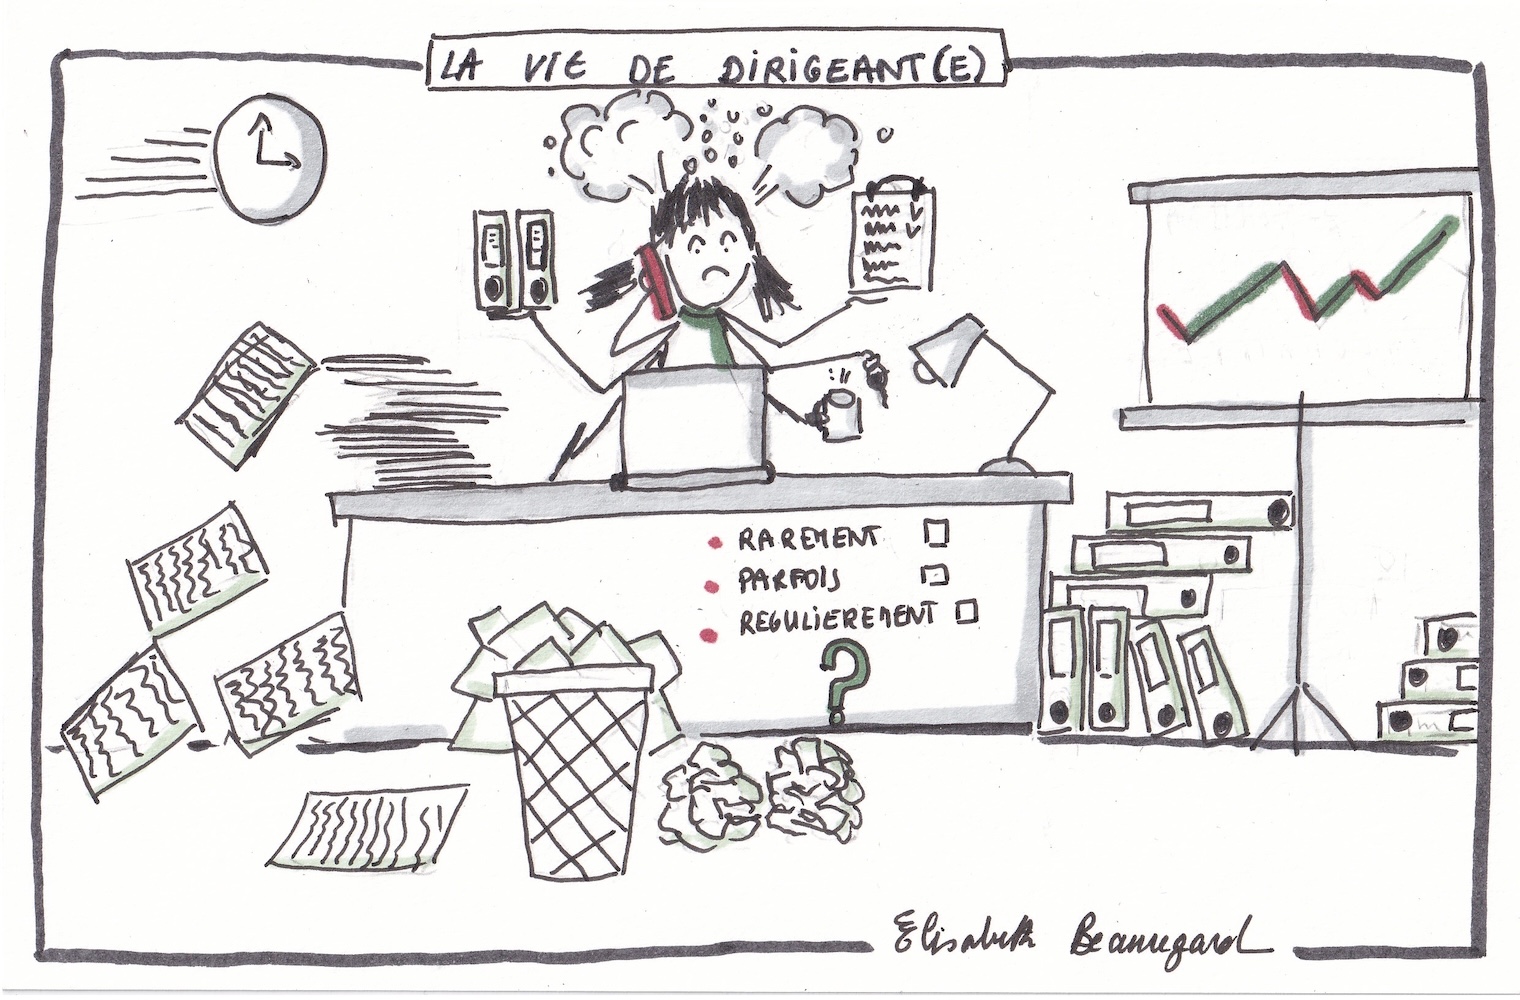 LA VIE DE DIRIGEANT(E)
RAREMENT
PARFOIS
REGULIEREMENT
?
Elisabeth Beauregard